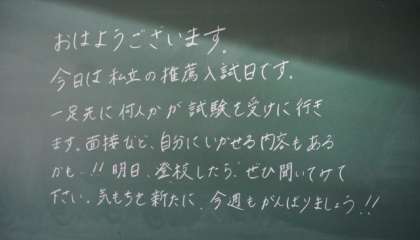 おはようございます.
今日は私立の推薦入試日です.
一足先に何人かが試験を受けに行き
ます.面接など、自分にいかせる内容もある
かも…!!明日、登校したら、ぜひ聞いてみて
下さい.気もちを新たに、今週もがんばりましょう!!